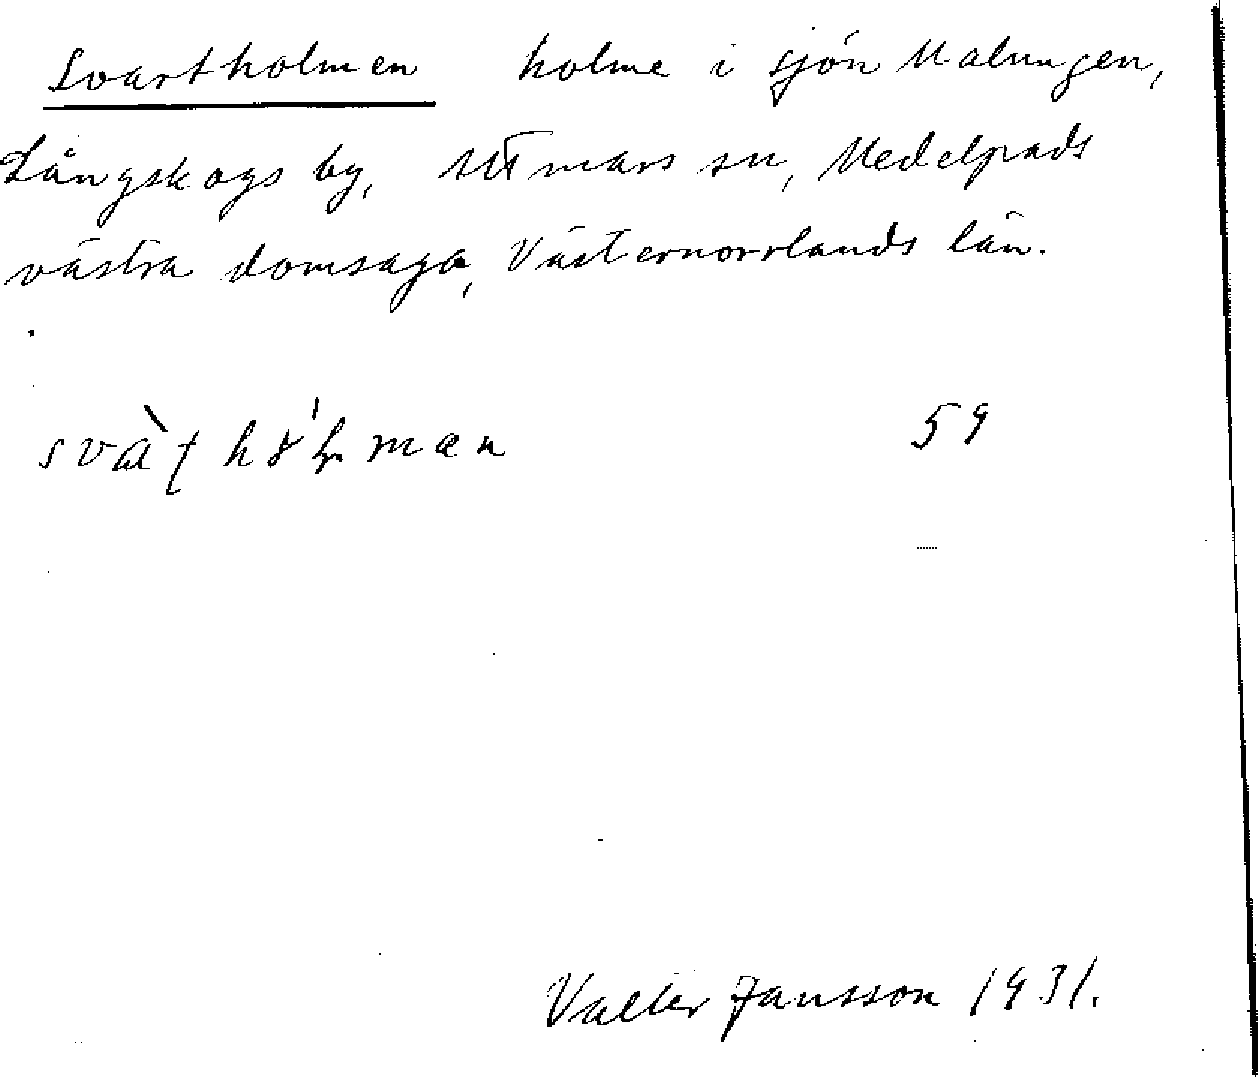 Svartholmen holme i sjön Malungen,
Långskogs by, Attmars sn, Medelpads
västra domsaga, Västernorrlands län.
59
Valter Jansson 1931.